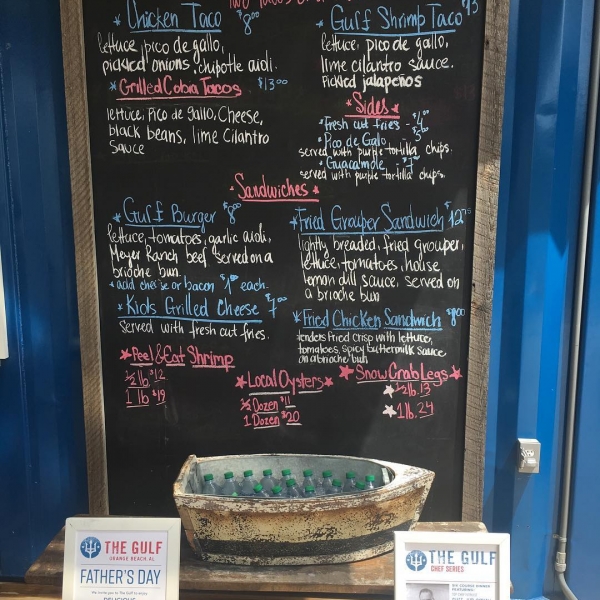 Chicken Taco $8⁰⁰
lettuce, pico de gallo,
pickled onions, chipotle aioli.
*Grilled Cobia Tacos $13⁰⁰
lettuce, Pico de gallo, Cheese,
black beans, lime Cilantro
Sauce
*Gulf Shrimp Taco
lettuce, pico de gallo,
lime cilantro sauce.
Pickled jalapeños
*Sides*
*Fresh cut fries - $4⁰⁰
*Pico de Galo
served with purple tortilla chips.
*Guacamole
served with purple tortilla chips.
*Sandwiches*
*Gulf Burger $8⁰⁰
lettuce, tomatoes, garlic aioli,
Meyer Ranch beef served on a
brioche bun.
*add cheese or bacon $1⁰⁰ each.
*Kids Grilled Cheese $7⁰⁰
Served with fresh cut fries.
*Fried Grouper Sandwich $12⁰⁰
lightly breaded, fried grouper,
lettuce, tomatoes, house
lemon dill sauce, served on
a brioche bun
*Fried Chicken Sandwich $8⁰⁰
tenders fried crisp with lettuce,
tomatoes, spicy buttermilk sauce
on a brioche bun
★Peel & Eat Shrimp
½ lb. $12
1 lb $19
★Local Oysters★
½ Dozen $11
1 Dozen $20
★Snow Crab Legs★
½ lb. 13
1 lb. 24
THE GULF
ORANGE BEACH, AL
FATHER'S DAY
THE GULF
CHEF SERIES